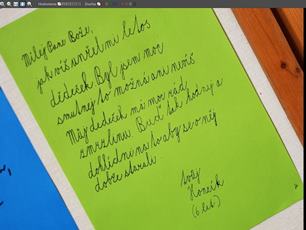 Milej Pane Bože,
jak víš umřel mi letos
dědeček. Byl jsem moc
smutnej to možná ani nevíš
Můj dědeček má moc rád
zmrzlinu. Buď tak hodnej a
dohlídni na to aby se o něj
dobře starali.
tvůj
Honzík
(6 let)